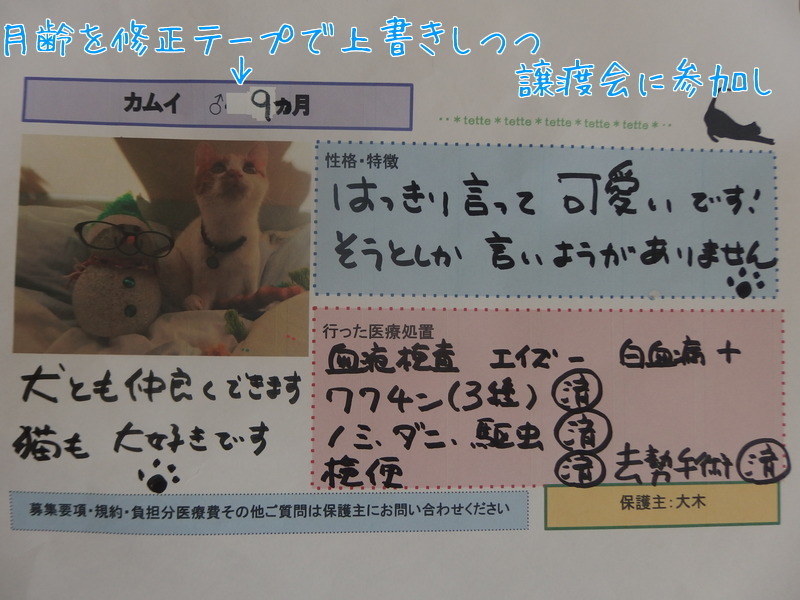 月齢を修正テープで上書きしつつ
↓
譲渡会に参加し
カムイ ♂ 9ヵ月
‥*tette*tette*tette*tette*tette*‥
性格・特徴
はっきり言って 可愛いです!
そうとしか 言いようがありません
行った医療処置
血液検査 エイズ− 白血病+
ワクチン(3種) 済
ノミ、ダニ、駆虫 済
検便 済 去勢手術 済
犬とも仲良くできます
猫も 大好きです
募集要項・規約・負担分医療費その他ご質問は保護主にお問い合わせください
保護主:大木